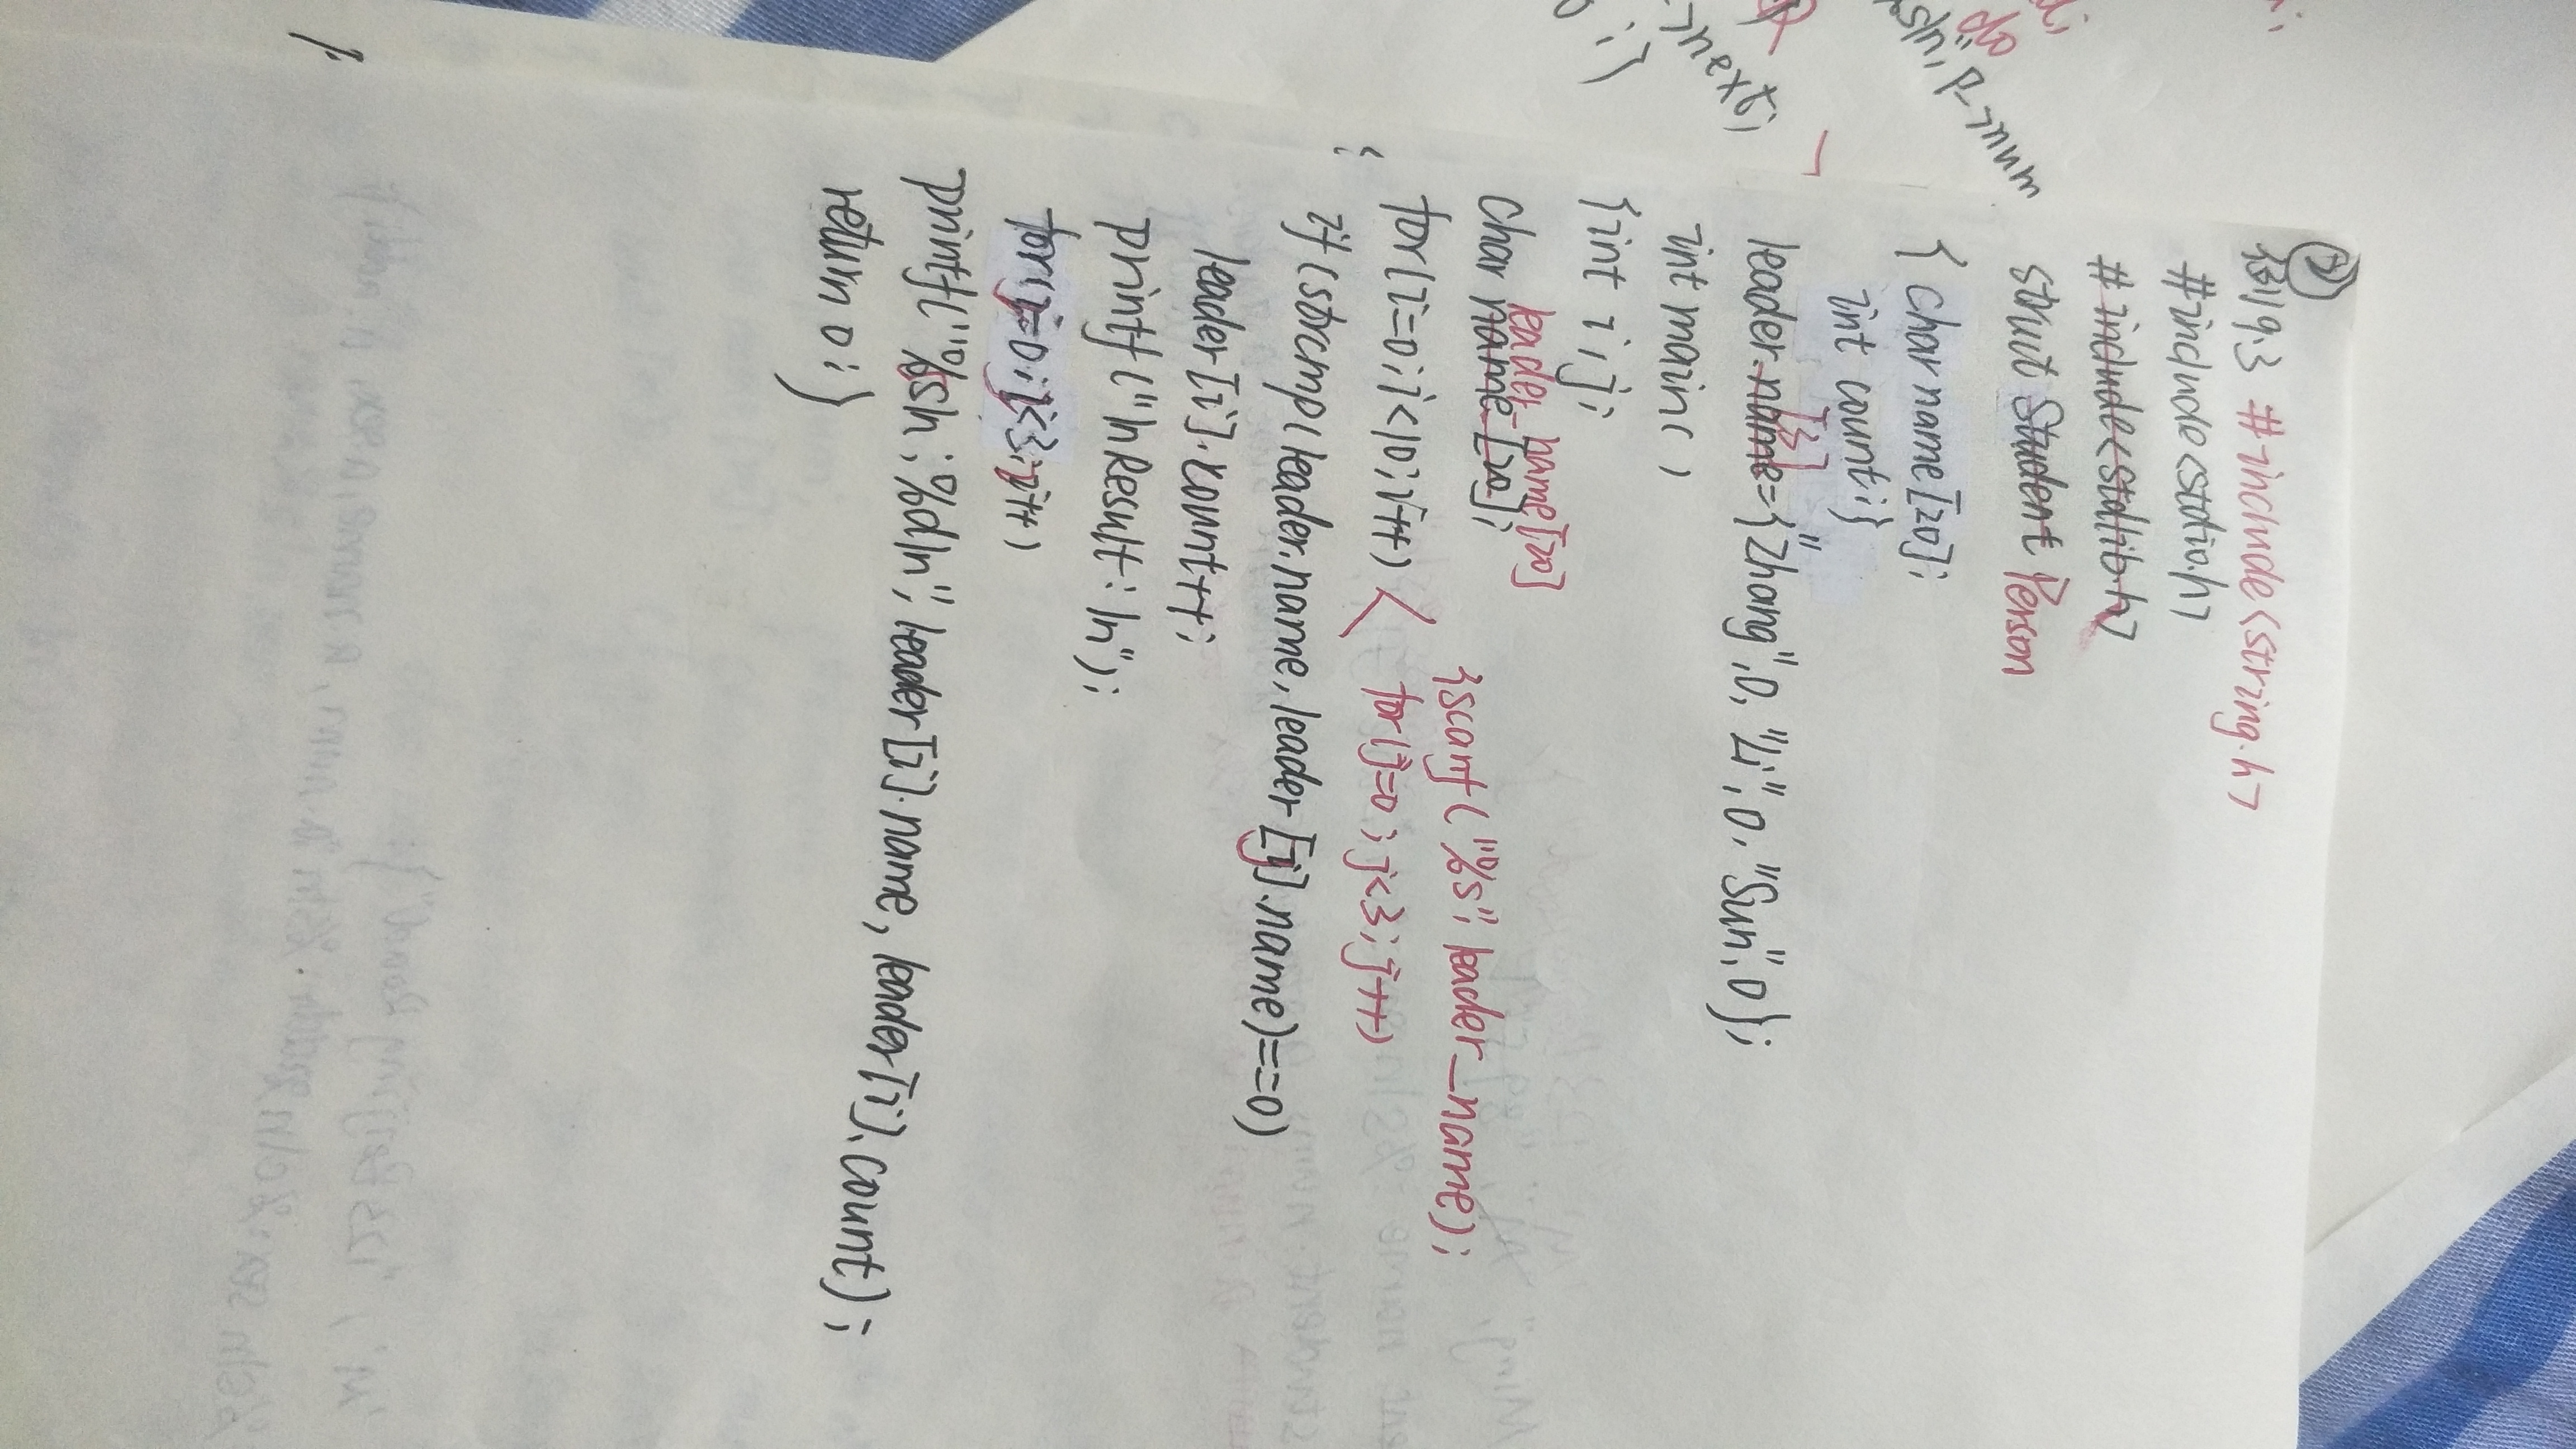 ②
例9.3 #include<string.h>
#include<stdio.h>
#include<stdlib.h>
struct Student Person
{ char name[20];
int count;}
[3]
leader.name={"Zhang",0,"Li",0,"Sun",0};
int main()
{int i,j;
leader_name[20]
char name[20];
{scanf("%s",leader_name);
for(i=0;i<10;i++) < for(j=0;j<3;j++)
if(strcmp(leader.name,leader[j].name)==0)
leader[i].count++;
printf("\nResult:\n");
for(j=0;j<3;j++)
printf("%5s\n;%d\n",leader[i].name,leader[i].count);
return 0;}
do
s\n",p->num
->next;
;}